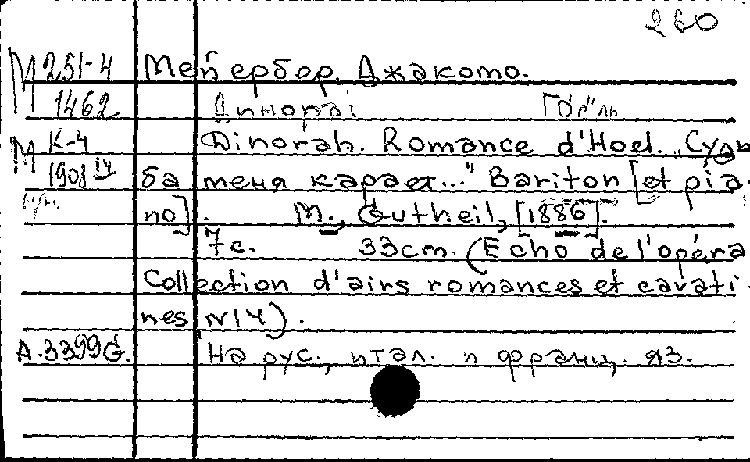 260
М 251-4 Мейербер, Джакомо.
1462 Динора
Dinorah. Romance d'Hoel. „Судь
М К-4
1908 ба меня карает..." Bariton [et pia-
no]. М., Gutheil, [1886].
7с. 33cm. (Echo de l'opéra
Collection d'airs romances et cavati-
nes N14).
A.3399G. На рус., итал. и франц. яз.